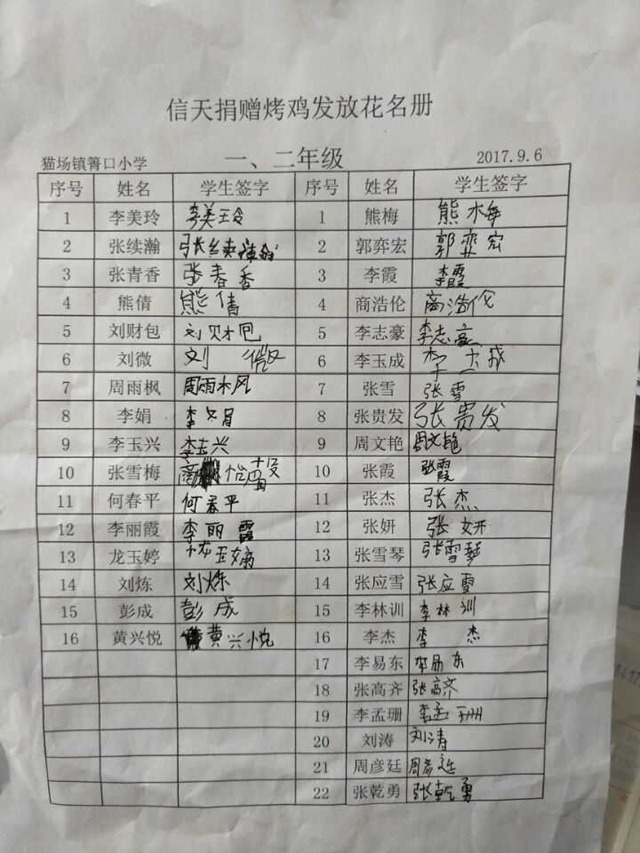 信天捐赠烤鸡发放花名册
猫场镇箐口小学 一、二年级 2017.9.6
序号 姓名 学生签字 序号 姓名 学生签字
1 李美玲 李美玲 1 熊梅 熊梅
2 张续瀚 张续瀚 2 郭弈宏 郭弈宏
3 张青香 张春香 3 李霞 李霞
4 熊倩 熊倩 4 商浩伦 商浩伦
5 刘财包 刘财包 5 李志豪 李志豪
6 刘微 刘微 6 李玉成 李玉成
7 周雨枫 周雨枫 7 张雪 张雪
8 李娟 李娟 8 张贵发 张贵发
9 李玉兴 李玉兴 9 周文艳 周文艳
10 张雪梅 10 张霞 张霞
11 何春平 何春平 11 张杰 张杰
12 李丽霞 李丽霞 12 张妍 张妍
13 龙玉婷 龙玉婷 13 张雪琴 张雪琴
14 刘炼 刘炼 14 张应雪 张应雪
15 彭成 彭成 15 李林训 李林训
16 黄兴悦 黄兴悦 16 李杰 李杰
17 李易东 李易东
18 张高齐 张高齐
19 李孟珊 李孟珊
20 刘涛 刘涛
21 周彦廷 周彦廷
22 张乾勇 张乾勇